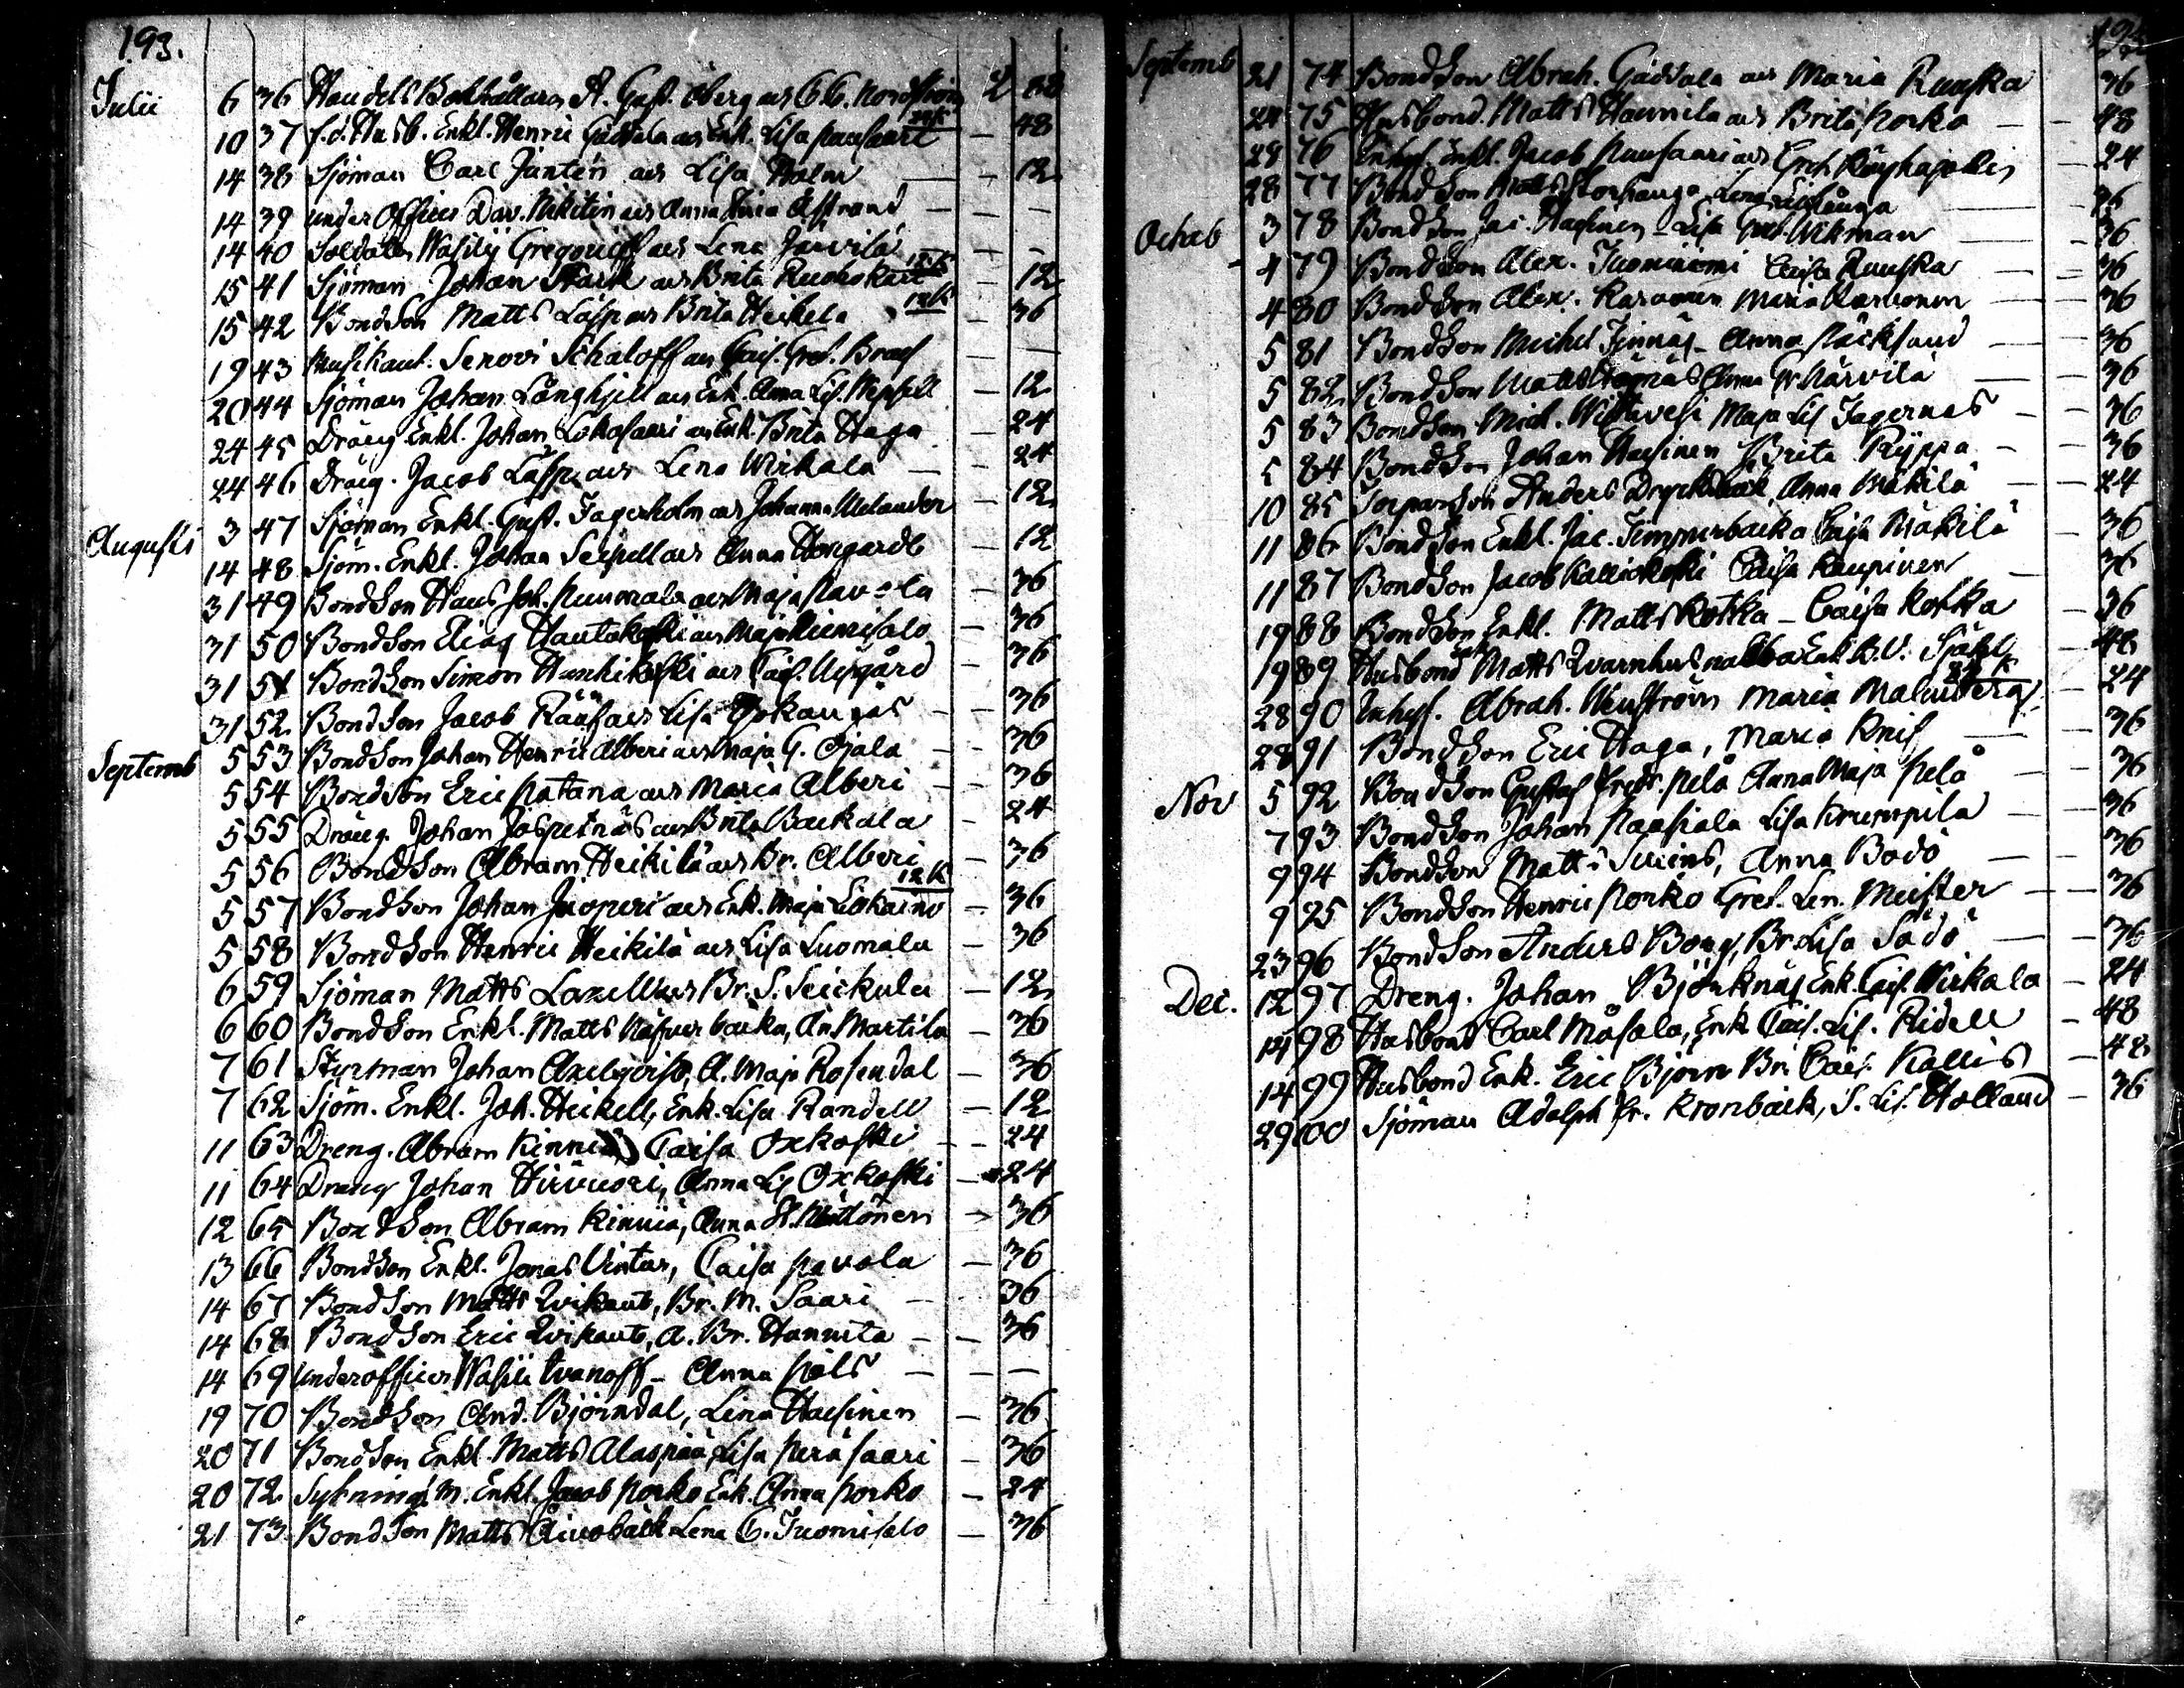 193.
Julii 6 36 Handels Bokhållaren A. Gust. Öberg och C. C. Nordström 2 88
10 37 f.d. Husb. Enkl. Henric Gådsala och Enk. Lisa Puusaari 24 K — 48
14 38 Sjöman Carl Jantén och Lisa Holm — — 12
14 39 under Officer Dav. Nikitin och Anna Åstrand — — —
14 40 Soldaten Wasilij Gregorieff och Lena Jarvilä — —
15 41 Sjöman Johan Stark och Brita Ruohokari 12 K — 12
15 42 Bondson Matts Läsp och Brita Heikela 12 K — 36
19 43 Musikant. Senovi Schaloff och Cajs. Gret. Brask — —
20 44 Sjöman Johan Långhjell och Enk. Anna Lis. — 12
24 45 Dräng Enkl. Johan Lokasaari och Enk. Brita Haga — 24
24 46 Dräng. Jacob Läspä och Lena Wirkala — — 24
Augusti 3 47 Sjöman Enkl. Gust. Fagerholm och Johanna Melander — 12
14 48 Sjöm. Enkl. Johan Seipell och Anna Hongardt — 12
31 49 Bondson Hans Joh. Punmala och Maja Pavola — 36
31 50 Bondson Elias Hautakoski och Maja Kiimisalo — 36
31 51 Bondson Simon Hanhikoski och Cajs. Nygård — 36
31 52 Bondson Jacob Rääf och Lisa Djekangas — 36
Septemb 5 53 Bondson Johan Henric Alberi och Maja G. Ojala — 36
5 54 Bondson Eric Patana och Maria Alberi — 36
5 55 Dräng. Johan Jäspernäs och Brita Backala — 24
5 56 Bondson Abram Heikilä och Br. Alberi — 36
5 57 Bondson Johan Juoperi och Enk. Maja Liskaino 12 K — 36
5 58 Bondson Henric Heikilä och Lisa Luomala — 36
6 59 Sjöman Matts Laxell och Br. S. Seickula — 12
6 60 Bondson Enkl. Matts Nåfverbacka, An. Martila — 36
7 61 Styrman Johan Axelqvist, A. Maja Rosendal — 36
7 62 Sjöm. Enkl. Joh. Heickell, Enk. Lisa Randell — 12
11 63 Dreng. Abram Kinnia, Caisa Oxkoski — 24
11 64 Dräng Johan Hirvivori, Anna Lis Oxkoski — 24
12 65 Bondson Abram Kinnia, Anna — 36
13 66 Bondson Enkl. Jonas Vintar, Caisa Pavola — 36
14 67 Bondson Matts Wikant, Br. M. Saari — 36
14 68 Bondson Eric Wikant, A. Br. Hannila — — 36
14 69 Underofficer Wasili Ivanoff — Anna Påls — — —
19 70 Bondson And. Björndal, Lena Hassinen — 36
20 71 Bondson Enkl. Matts Alaspää, Lisa Peräsaari — 36
20 72 Sytning. M. Enkl. Jacob Porko Enk. Anna Porko — 24
21 73 Bondson Matts Åivoback Lena C. Tuomisalo — 36
194
Septemb 21 74 Bondson Abrah. Gådsala och Maria Ruuska 36
24 75 Husbond. Matts Hannila och Brita Porko — — 48
28 76 Inhys. Enkl. Jacob Puusaari och Gret. — 24
28 77 Bondson Matts Storkanga Lena — 36
Octob 3 78 Bondson Jac. Hassinen — Lisa Gret. Wikman — 36
4 79 Bondson Alex. Tuominiemi Caisa Ruuska — — 36
4 80 Bondson Alex. Karvonen Maria Karvonen — 36
5 81 Bondson Michel Finnäs — Anna Päcksund — 36
5 82 Bondson Matts Anna Br. Närvilä — 36
5 83 Bondson Mich. Wittavesi Maja Lis Fagernäs — — 36
5 84 Bondson Johan Hassinen Brita Ryppä — — 36
10 85 Torparson Anders Dryckbäck Anna Mäkilä — — 24
11 86 Bondson Enkl. Jac. Timmerbacka Caisa Mäkilä — 36
11 87 Bondson Jacob Kalliokoski Caisa Kaupinen — 36
19 88 Bondson Enkl. Matts Kotka — Caisa Kotka — 36
19 89 Husbond Enk. Matts Qvarnhus Enk. B. U. Själ — 48
28 90 Inhys. Abrah. Wenström Maria Malmberg 24 K — 24
28 91 Bondson Eric Haga, Maria Knif — 36
Nov 5 92 Bondson Gustaf Fredr. Pelå Anna Maja Pelå — 36
7 93 Bondson Johan Passiala Lisa Krumpila — 36
9 94 Bondson Matts Sveins, Anna Bodö — 36
9 95 Bondson Henric Porko Gret. Len. Meister — — 36
23 96 Bondson Anders Bong, Br. Lisa Sådö — — 36
Dec. 12 97 Dreng. Johan Björknäs Enk. Cajs. Wirkala — 24
14 98 Husbond Carl Måsala, Enk. Cais. Lis. Ridell — 48
14 99 Husbond Enk. Eric Björn Br. Cais. Kallis — 48
29 100 Sjöman Adolph Fr. Kronback, S. Lis. Holland — 36